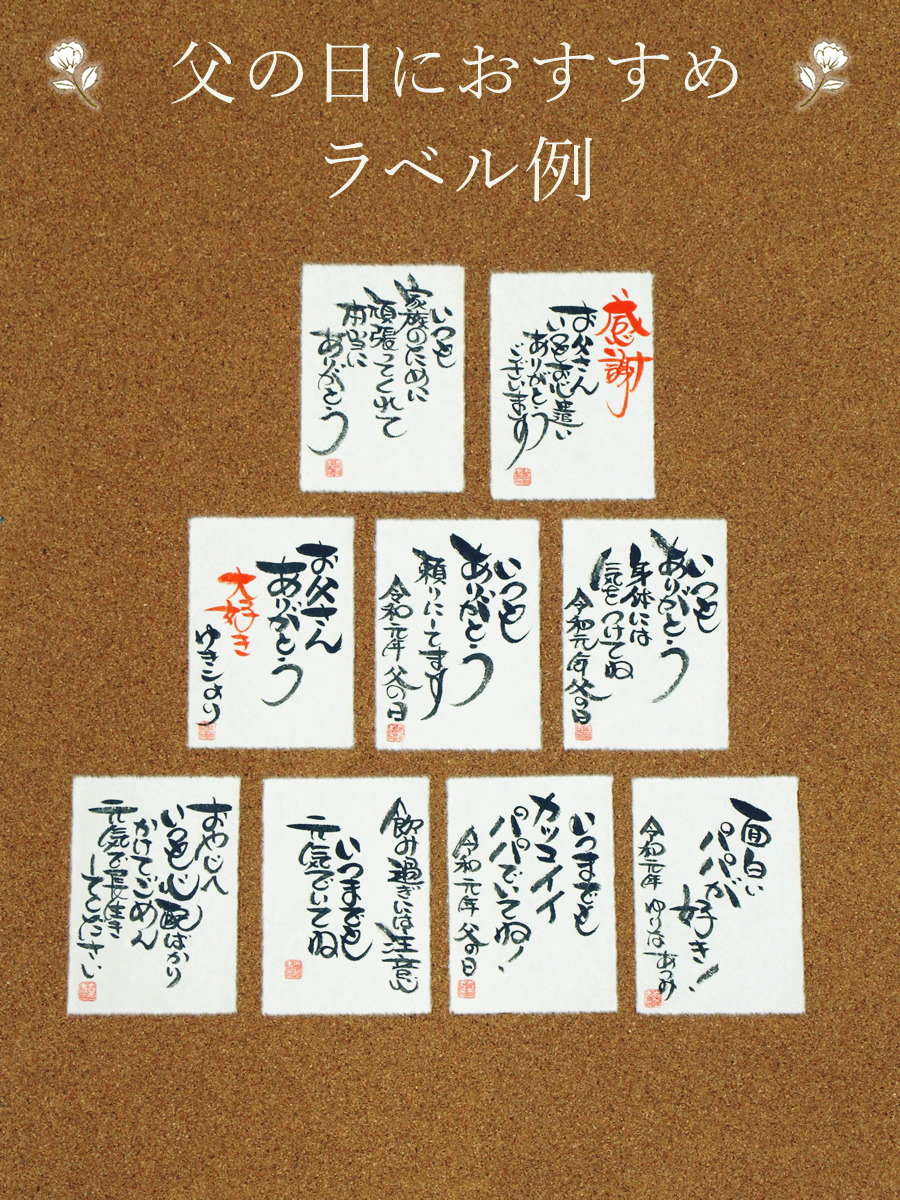 父の日におすすめ
ラベル例
いつも
家族のために
頑張ってくれて
本当に
ありがとう
感謝
お父さん
いつもお心遣い
ありがとう
ございます
お父さん
ありがとう
大好き
ゆきこより
いつも
ありがとう
頼りにしてます
令和元年 父の日
いつも
ありがとう
身体には
気をつけてね
令和元年 父の日
おやじへ
いつも心配ばかり
かけてごめん
元気で長生き
してください
飲み過ぎには注意
いつまでも
元気でいてね
いつまでも
カッコイイ
パパでいてね!
令和元年 父の日
面白い
パパが
好き!
令和元年 ゆりな あつみ